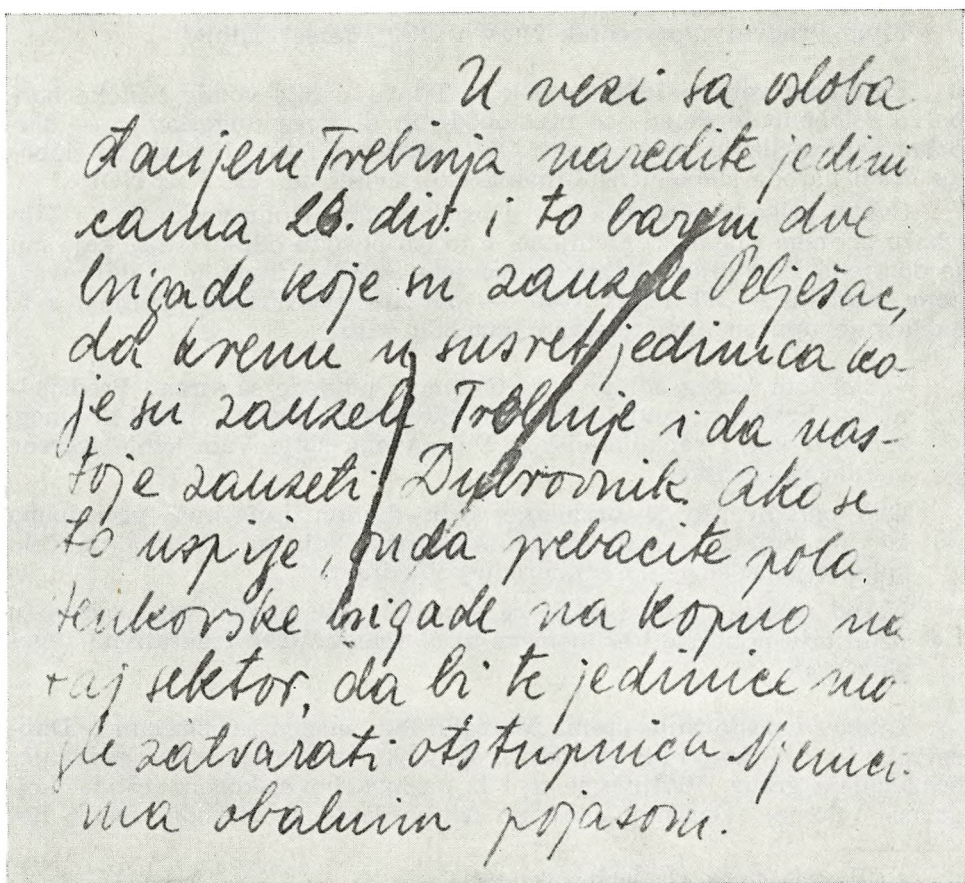 U vezi sa osloba
đanjem Trebinja naredite jedini
cama 26. div. i to barem dve
brigade koje su zauzele Pelješac,
da krenu u susret jedinica ko-
je su zauzele Trebinje i da nas-
toje zauzeti Dubrovnik. Ako se
to uspije, onda prebacite pola
tenkovske brigade na kopno na
taj sektor, da bi te jedinice mo
gle zatvarati otstupnicu Njemci-
ma obalnim pojasom.